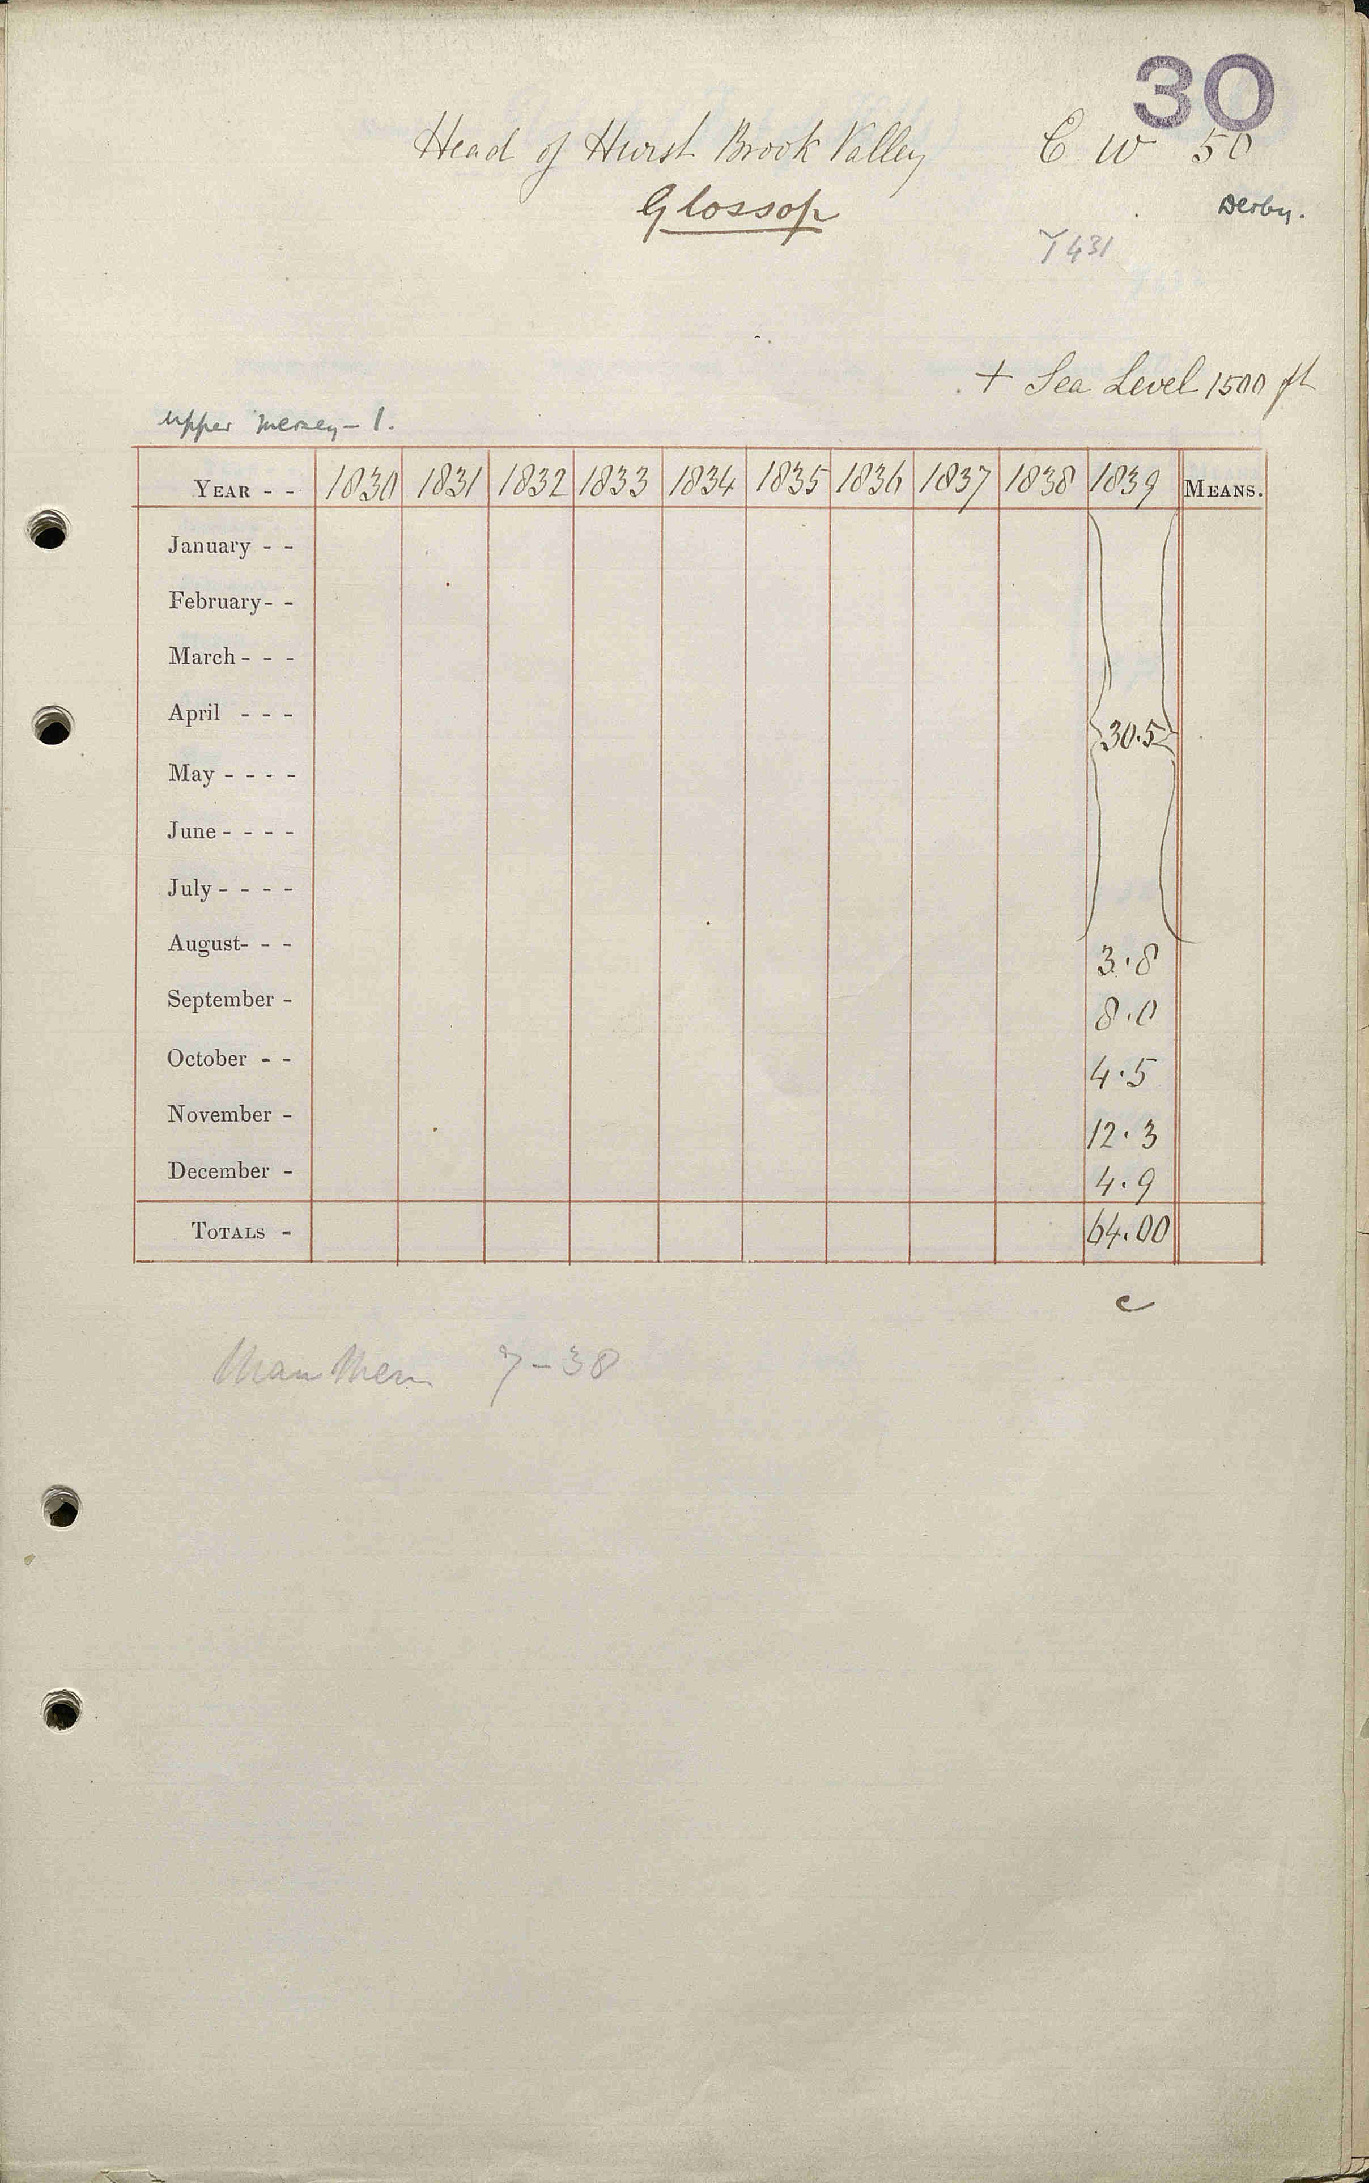 30
Head of Hurst Brook Valley C W 50
Glossop Derby.
T 431
+ Sea Level 1500 ft
Upper Mersey - 1.
YEAR - - 1830 1831 1832 1833 1834 1835 1836 1837 1838 1839 MEANS.
January - -
February - -
March - - -
April - - - 30.5
May - - - -
June - - - -
July - - - -
August - - - 3.8
September - 8.0
October - - 4.5
November - 12.3
December - 4.9
TOTALS - 64.00
c
7-38